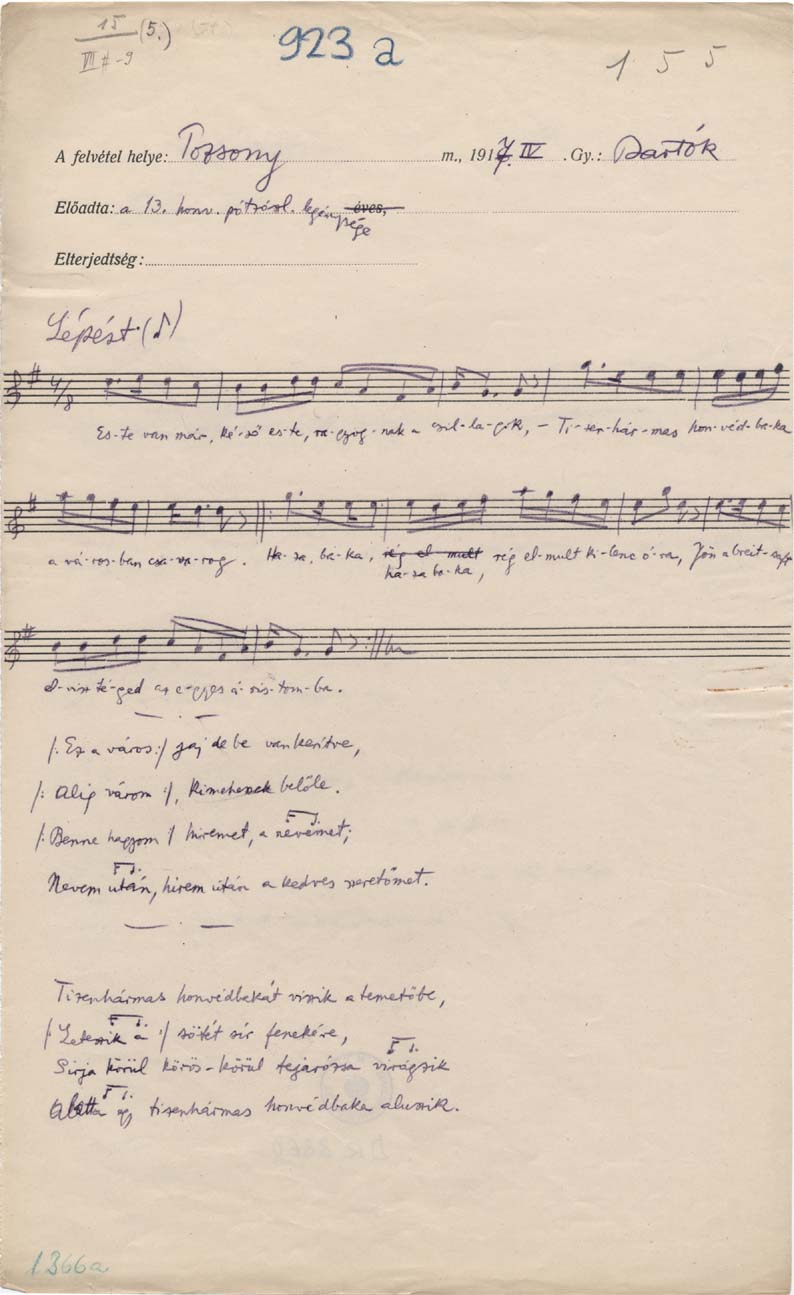 15 (5.)
923 a
155
VII # - 9
A felvétel helye: Pozsony m., 1917. IV. Gy.: Bartók
Előadta: a 13. honv. pótzászl. legénysége éves,
Elterjedtség:
Lépést (♪)
4/8
Es-te van már, ké-ső es-te, ra-gyog-nak a csil-la-gok, – Ti-zen-hár-mas hon-véd-ba-ka
a vá-ros-ban csa-va-rog. Ha-za, ba-ka, rég el-mult rég el-mult ki-lenc ó-ra, Jön a breit-sapp
ha-za ba-ka,
el-visz té-ged az e-gyes á-ris-tom-ba.
/: Ez a város :/ jaj de be van kerítve,
/: Alig várom :/, kimehessek belőle.
/: Benne hagyom :/ hiremet, a nevemet;
Nevem után, hirem után a kedves szeretőmet.
Tizenhármas honvédbakát viszik a temetőbe,
/: Leteszik a :/ sötét sír fenekére,
Sirja körül körös-körül tejarózsa virágzik
Alatta egy tizenhármas honvédbaka aluszik.
1366a